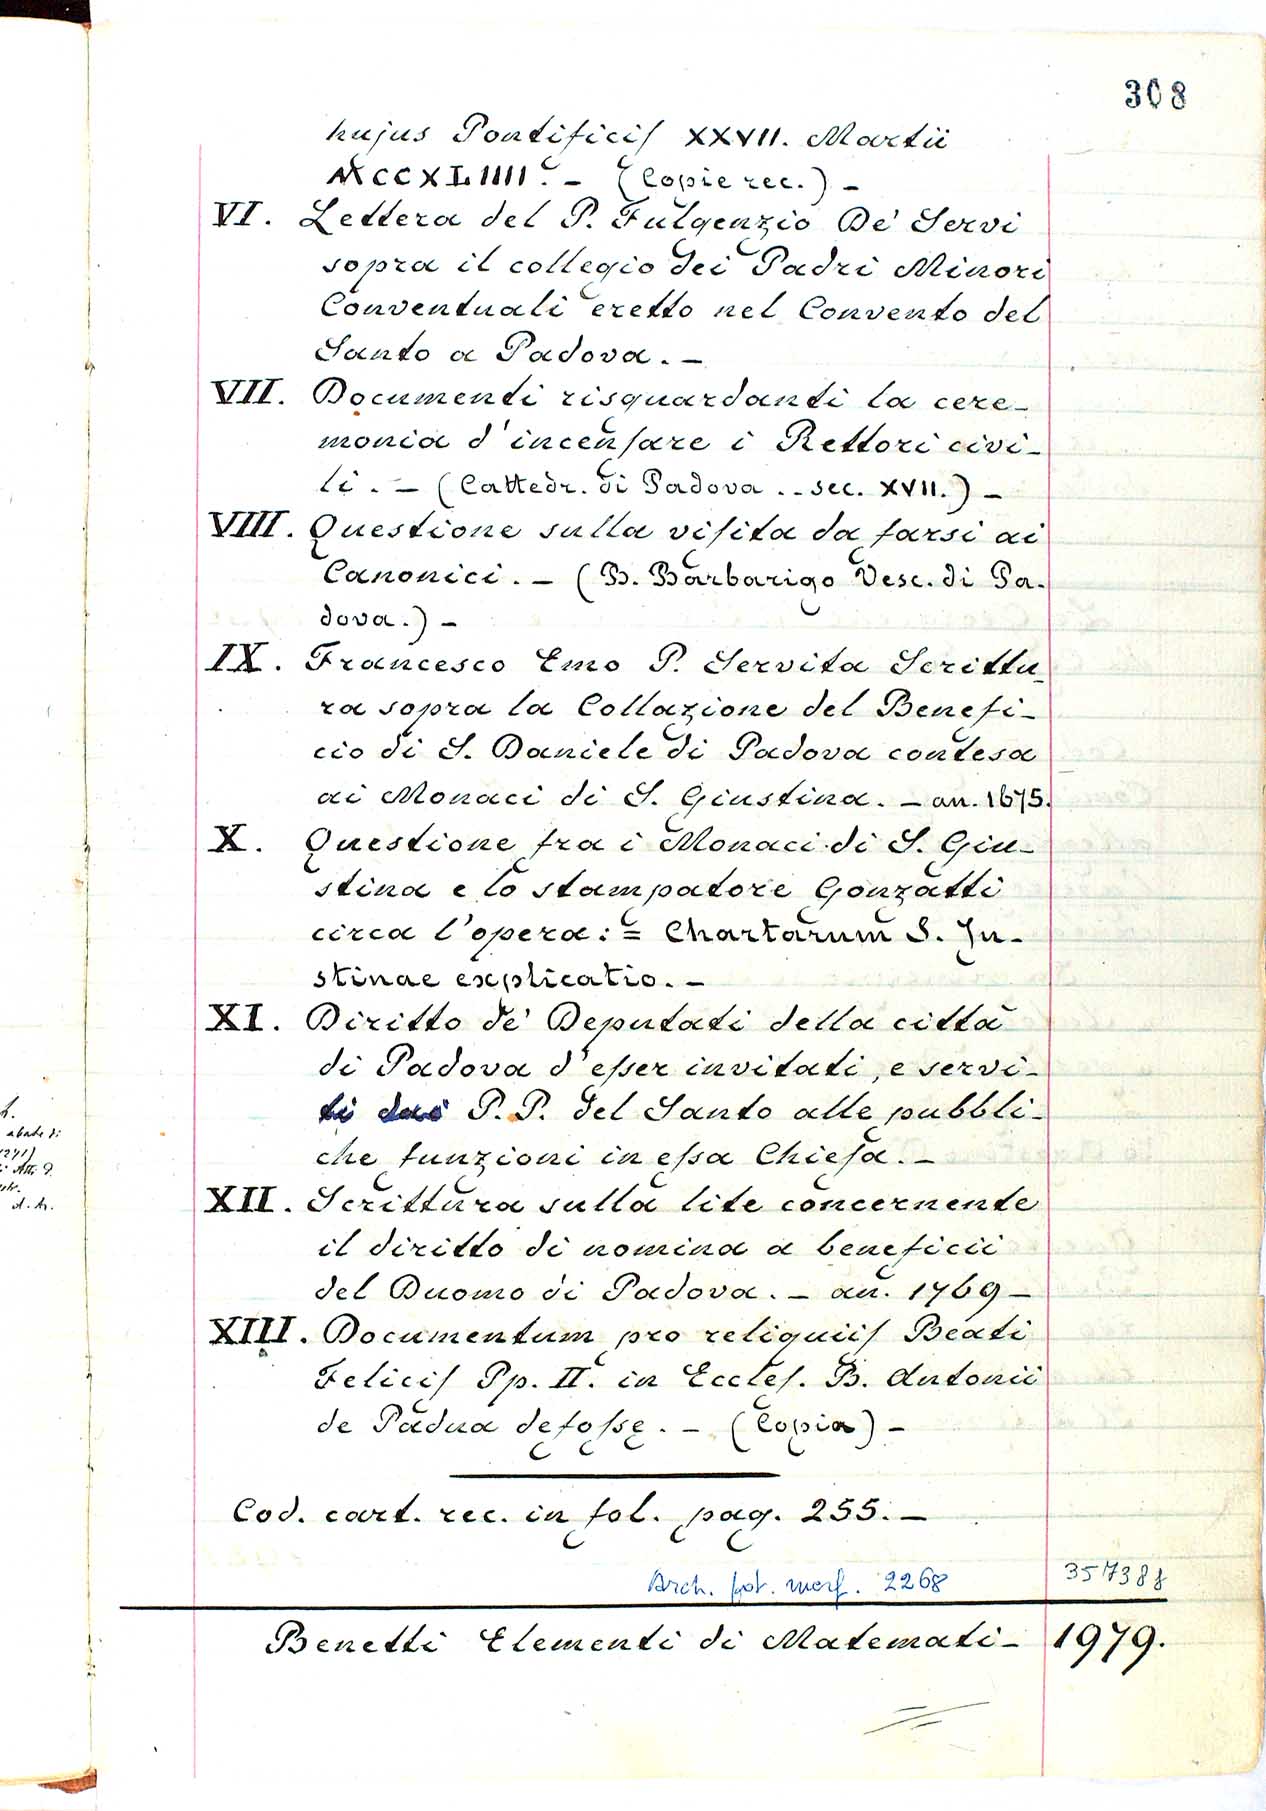 308
hujus Pontificiſ XXVII. Martii
MCCXLIIII. – (Copie rec.) –
VI. Lettera del P. Fulgenzio De' Servi
sopra il collegio dei Padri Minori
Conventuali eretto nel Convento del
Santo a Padova. –
VII. Documenti risguardanti la cere–
monia d'incenſare i Rettori civi–
li. – (Cattedr. di Padova. – sec. XVII.) –
VIII. Questione sulla viſita da farsi ai
Canonici. – (B. Barbarigo Vesc. di Pa–
dova.) –
IX. Francesco Emo P. Servita Scrittu–
ra sopra la Collazione del Benefi–
cio di S. Daniele di Padova contesa
ai Monaci di S. Giustina. – an. 1675.
X. Questione fra i Monaci di S. Giu–
stina e lo stampatore Gonzatti
circa l'opera: = Chartarum S. Ju–
stinae explicatio. –
XI. Diritto de' Deputati della città
di Padova d'eſser invitati, e servi–
ti dai P. P. del Santo alle pubbli–
che funzioni in eſsa Chieſa. –
XII. Scrittura sulla lite concernente
il diritto di nomina a beneficii
del Duomo di Padova. – an. 1769 –
XIII. Documentum pro reliquiiſ Beati
Feliciſ Pp. II. in Eccleſ. B. Antonii
de Padua defoſsę. – (Copia) –
Cod. cart. rec. in fol. pag. 255. –
Arch. fot. 2268
357388
Benetti Elementi di Matemati– 1979.
abate di